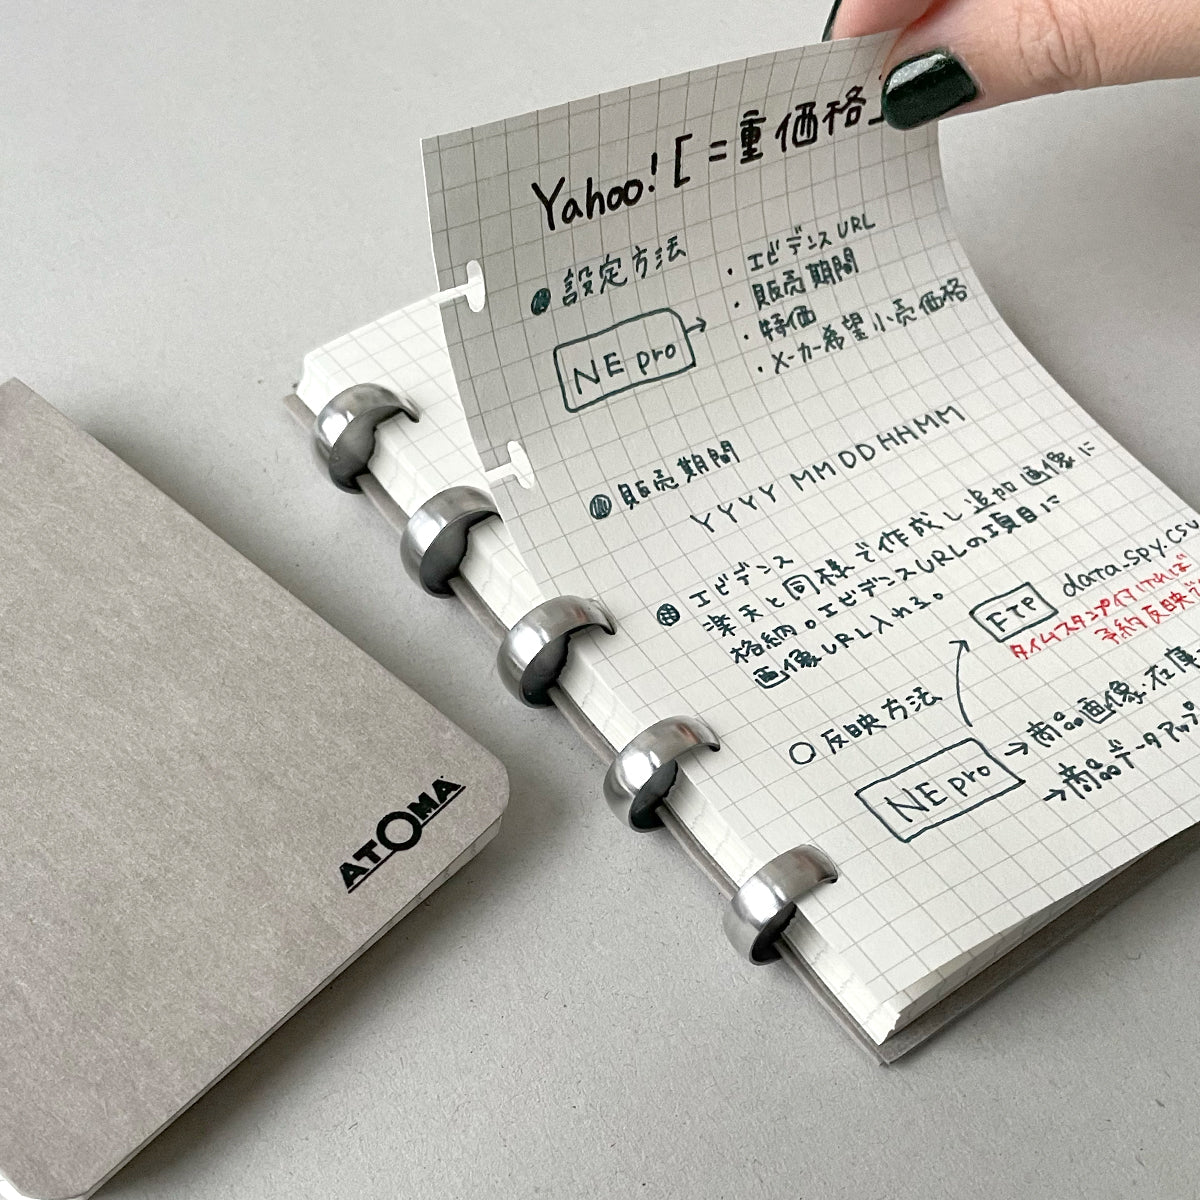 Yahoo! [二重価格]
設定方法
NE pro →
・エビデンスURL
・販売期間
・特価
・メーカー希望小売価格
販売期間
YYYY MM DD HH MM
エビデンス
楽天と同様で作成し追加画像に
格納。エビデンスURLの項目に
画像URL入れる。
FTP data_spy.csv
タイムスタンプ付ければ
予約反映
○反映方法
NE pro
→商品画像・在庫
→商品データアップ
ATOMA